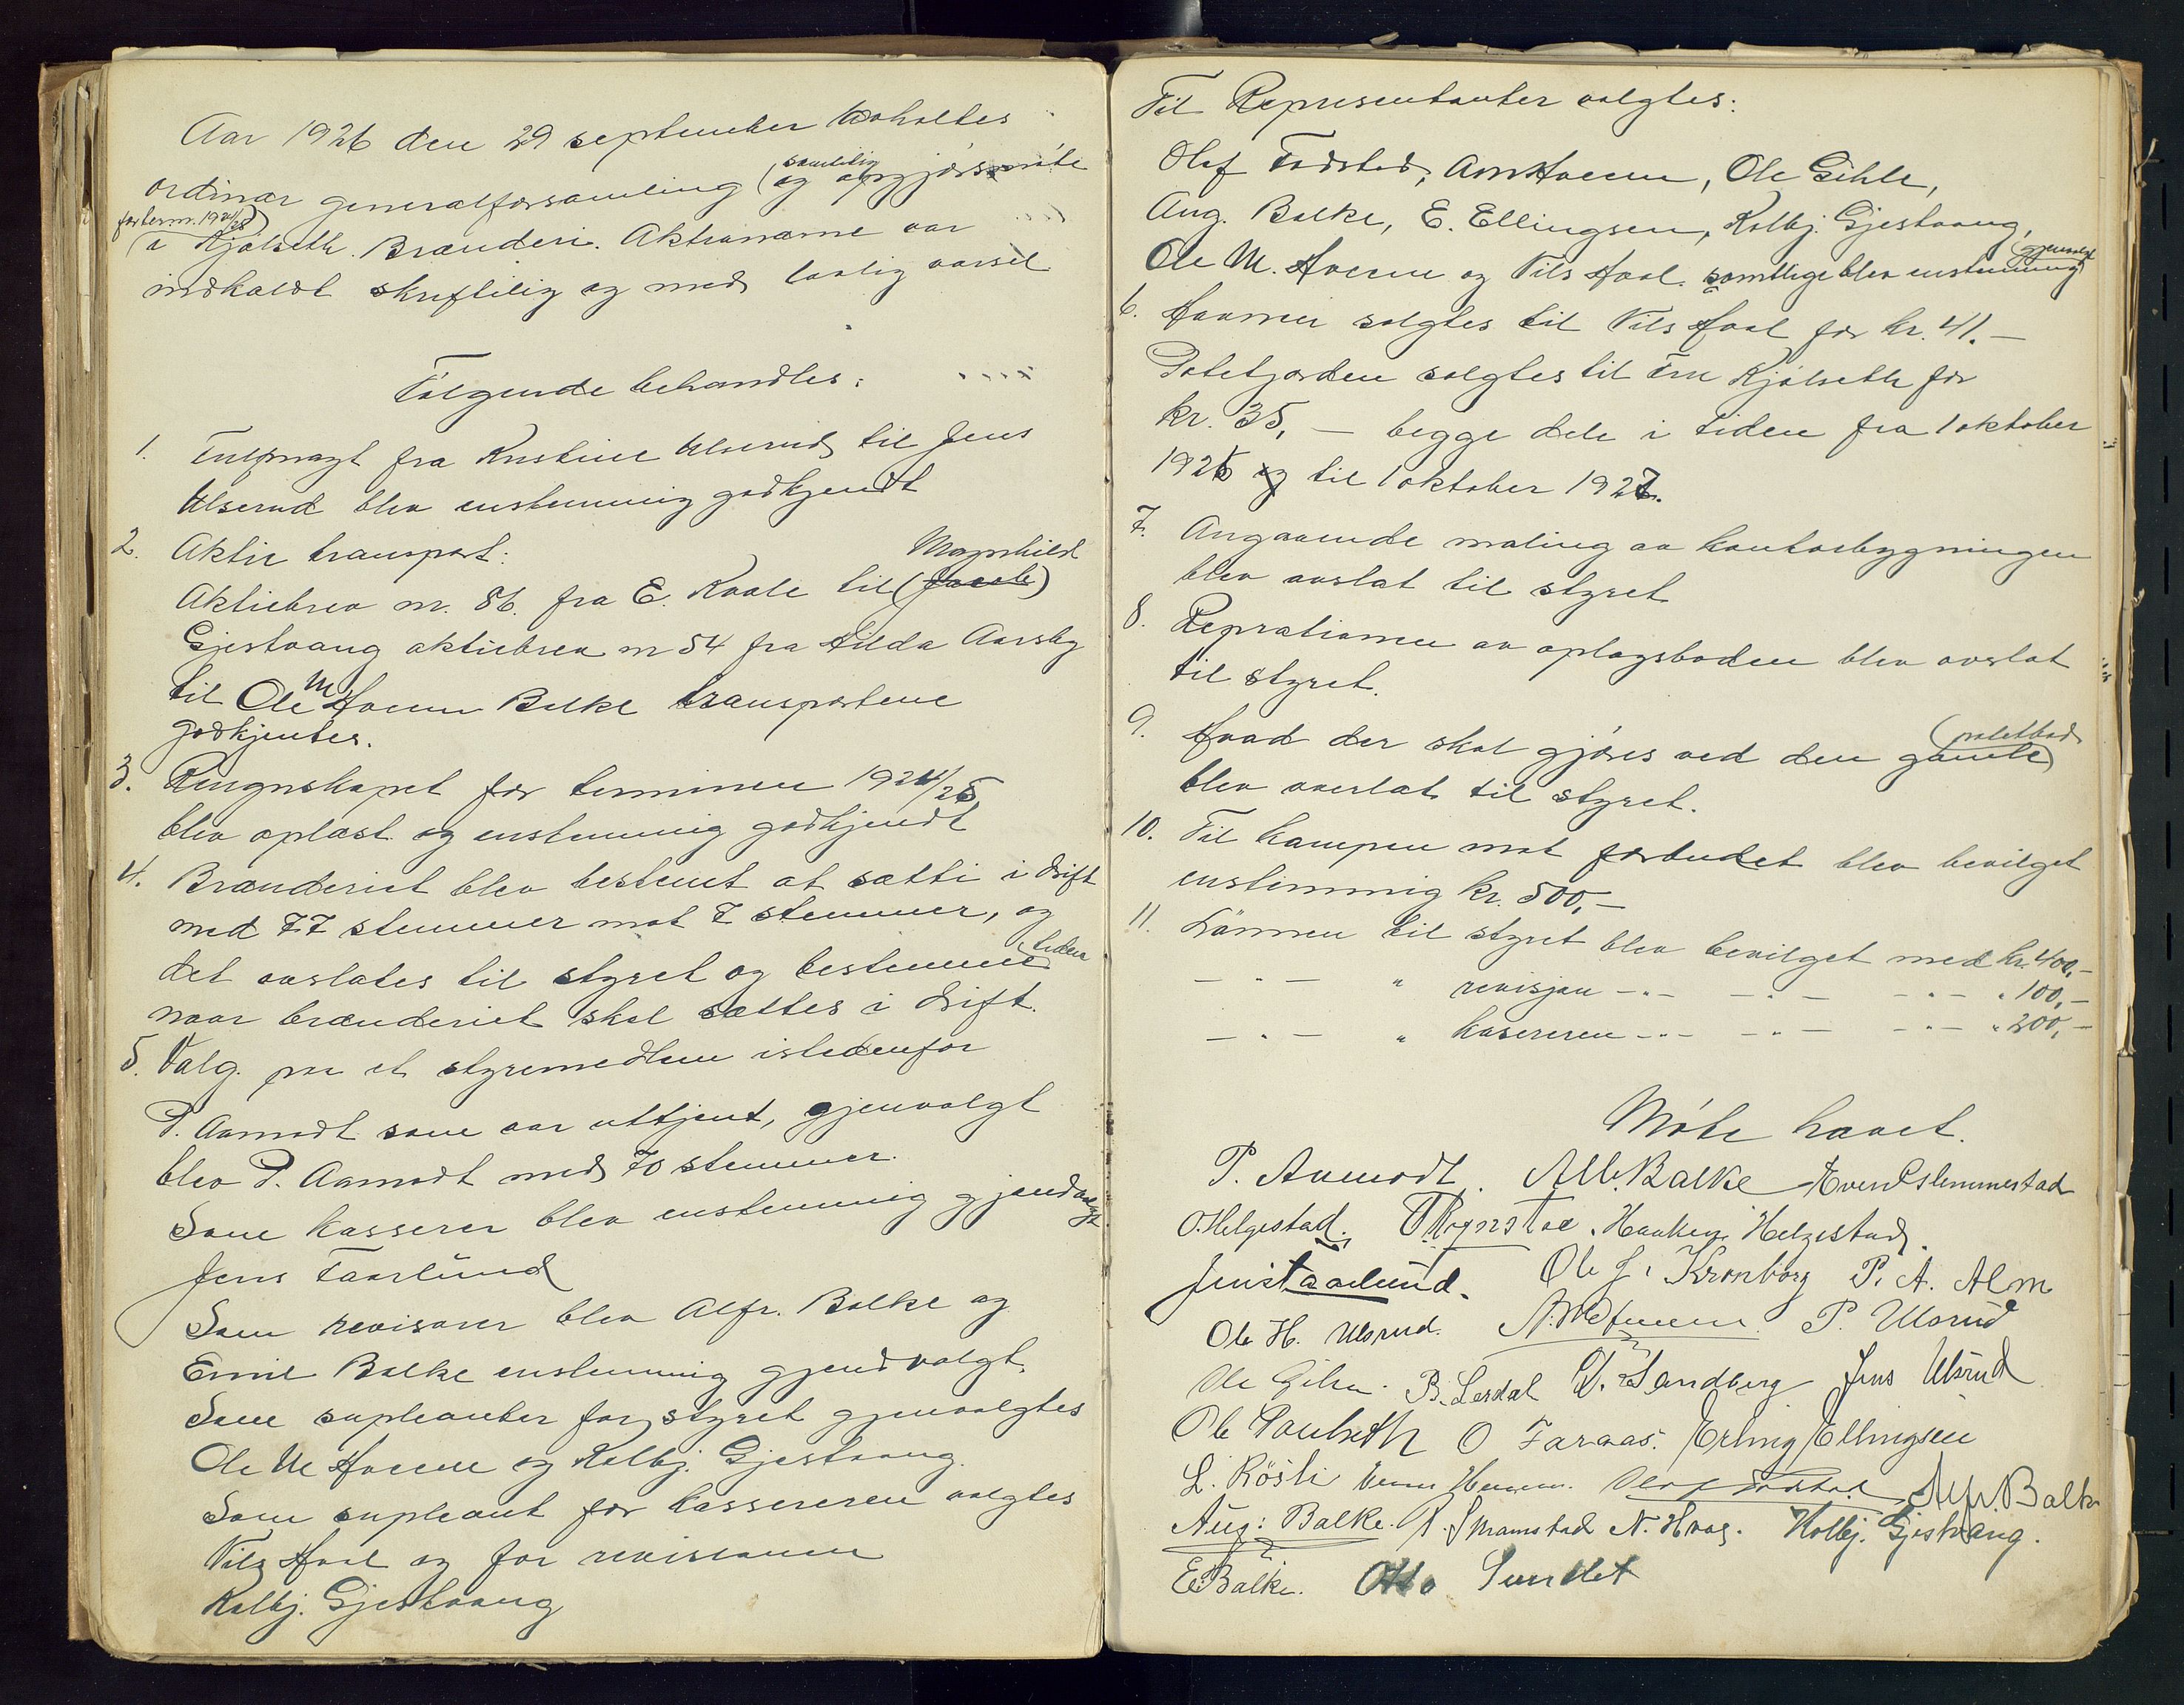 Aar 1926 den 29 september avholtes
ordinær generalforsamling (samtidig og opgjørsmøte
for term. 1924/25)
i Kjølseth Brænderi. Aktionærne var
indkaldt skriftlig og med lovlig varsel
Følgende behandles:
1. Fulmagt fra Kristine Ulsrud til Jens
Ulserud blev enstemmig godkjendt
2. Aktie transport:
Magnhild
Aktiebrev nr. 86. fra E. Kvale til (Jacob)
Gjestvang aktiebrev nr 54 fra Hilda Aarsby
til Ole M Hveem Balke transportene
godkjentes.
3. Rengnskapet for terminen 1924/25
blev oplæst og enstemmig godkjendt
4. Brænderiet blev bestemt at sætti i drift
med 77 stemmer mot 7 stemmer, og
det overlates til styret og bestemme (tiden
naar brænderiet skal sættes i drift.
5. Valg. paa et styremedlem istedenfor
P. Aamodt som var uttjent, gjenvalgt
blev P. Aamodt med 70 stemmer.
Som kasserer blev enstemmig gjendvalgt
Jens Faarlund
Som revisorer blev Alfr. Balke og
Emil Balke enstemmig gjendvalgt.
Som supleanter for styret gjenvalgtes
Ole M Hveem og Kolbj. Gjestvang.
Som supleant for kassereren valgtes
Nils Hval og for revisionen
Kolbj. Gjestvang
Til Representanter valgtes:
Olaf Fodstad, Am Hveem, Ole Gihle,
Aug. Balke, E. Ellingsen, Kolbj. Gjestvang,
Ole M. Hveem og Nils Hval. samtlige blev enstemmig (gjenvalgt
6. Havnen solgtes til Nils Hval for kr. 41.—
Potetjorden solgtes til Fru Kjølseth for
kr. 35,— begge dele i tiden fra 1 oktober
1926 og til 1 oktober 1927.
7. Angaaende maling av kontorbygningen
blev overlat til styret
8. Reprationen av oplagsboden blev overlat
til styret.
9. Hvad der skal gjøres ved den gamle (potetbod
blev overlat til styret.
10. Til kampen mot forbudet blev bevilget
enstemmig kr. 500,—
11. Lønnen til styret blev bevilget med kr. 400,—
— " — " revisjon — " — — " — — " — " 100,—
— " — " kasereren — " — — " — — " — " 200,—
Møte hævet.
P. Aamodt. Alb. Balke Even Slemmestad
O. Helgestad. O Rognstad. Haaken Helgestad.
Jens Faarlund. Ole J. Kronborg P. A. Alm
Ole H. Ulsrud. A. M Hveem P. Ulsrud
Ole Gihle. B. Lerdal O. Sandberg Jens Ulsrud
Ole Paulseth O Faraas. Erling Ellingsen
L. Røsli Even Hveem. Olaf Fodstad Alfr. Balke
Aug: Balke. P. Skramstad N. Hval. Kolbj. Gjestvang.
E. Balke. Otto Sundlet